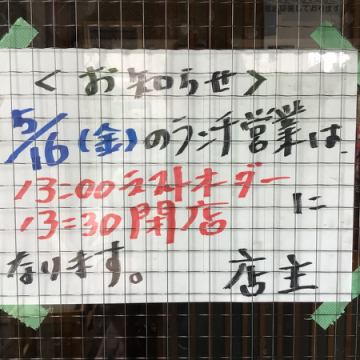 <お知らせ>
5/16(金)のランチ営業は、
13:00ラストオーダー
13:30閉店に
なります。 店主